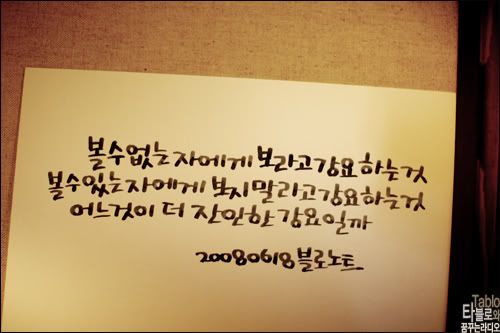 볼수없는자에게 보라고강요하는것
볼수있는자에게 보지말라고강요하는것
어느것이 더 잔인한 강요일까
20080618블로노트
Tablo
타블로와
꿈꾸는라디오